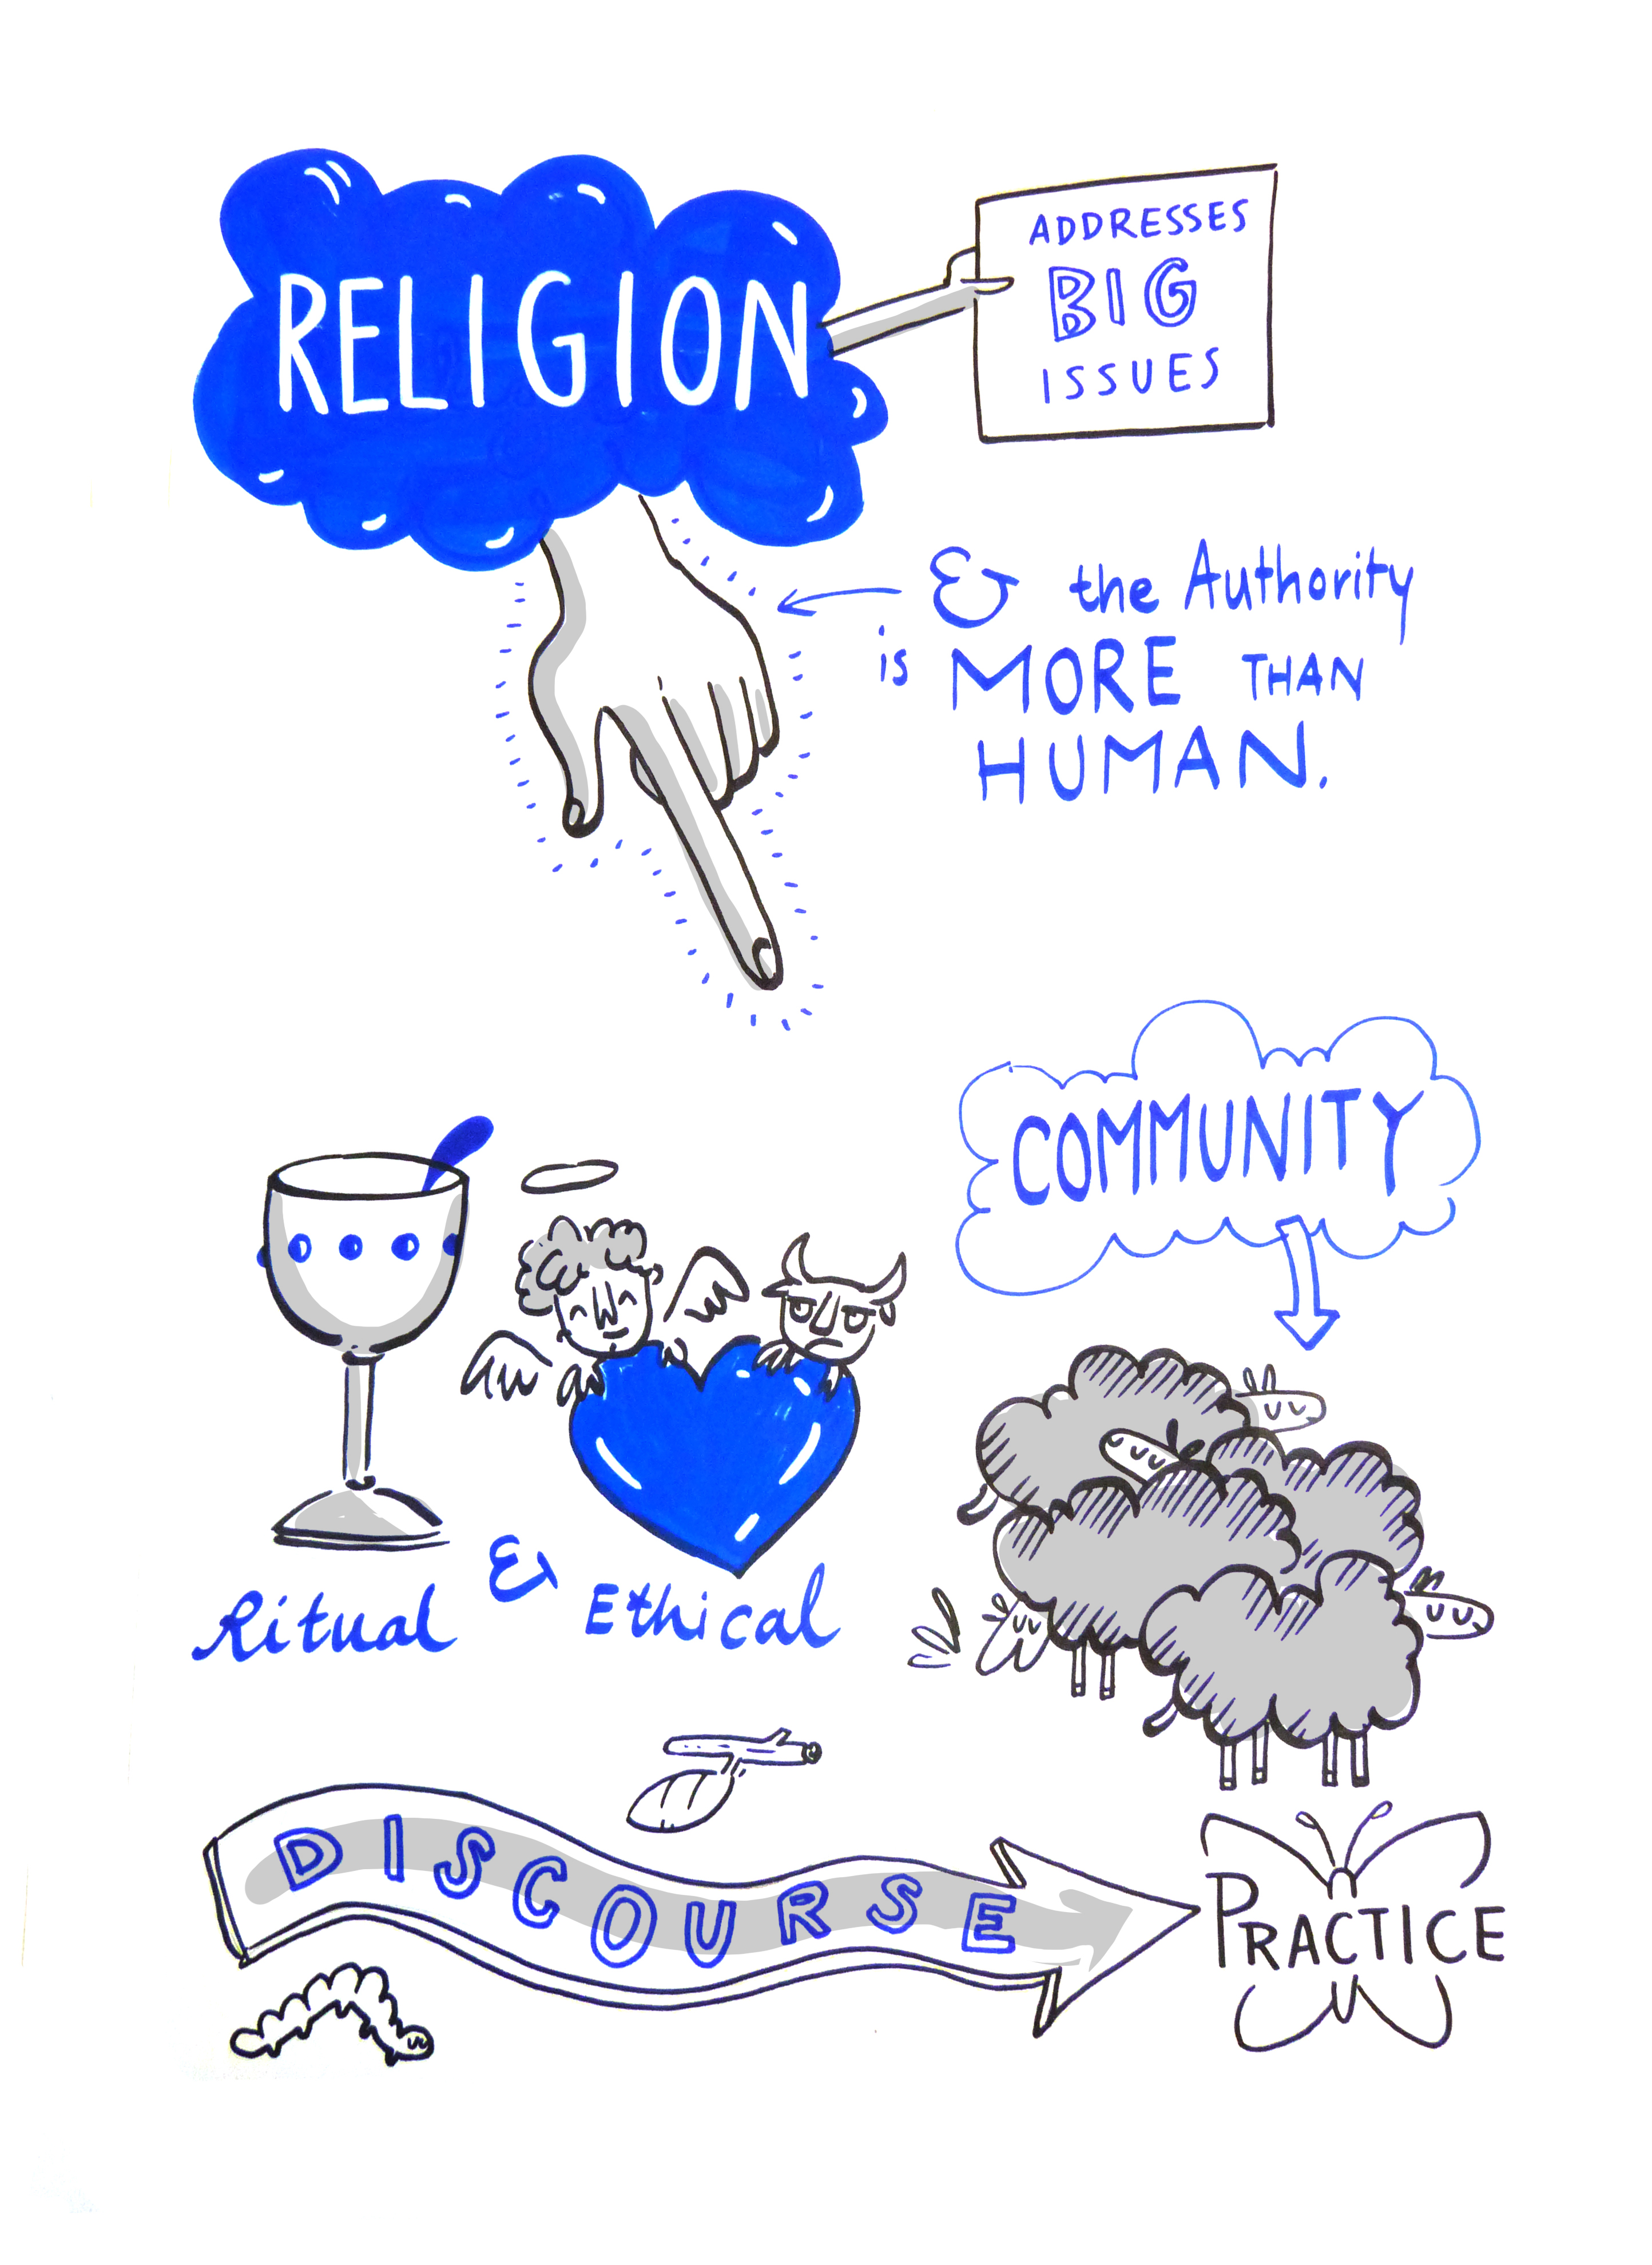 RELIGION
ADDRESSES
BIG
ISSUES
& the Authority
is MORE THAN
HUMAN.
COMMUNITY
Ritual & Ethical
DISCOURSE
PRACTICE